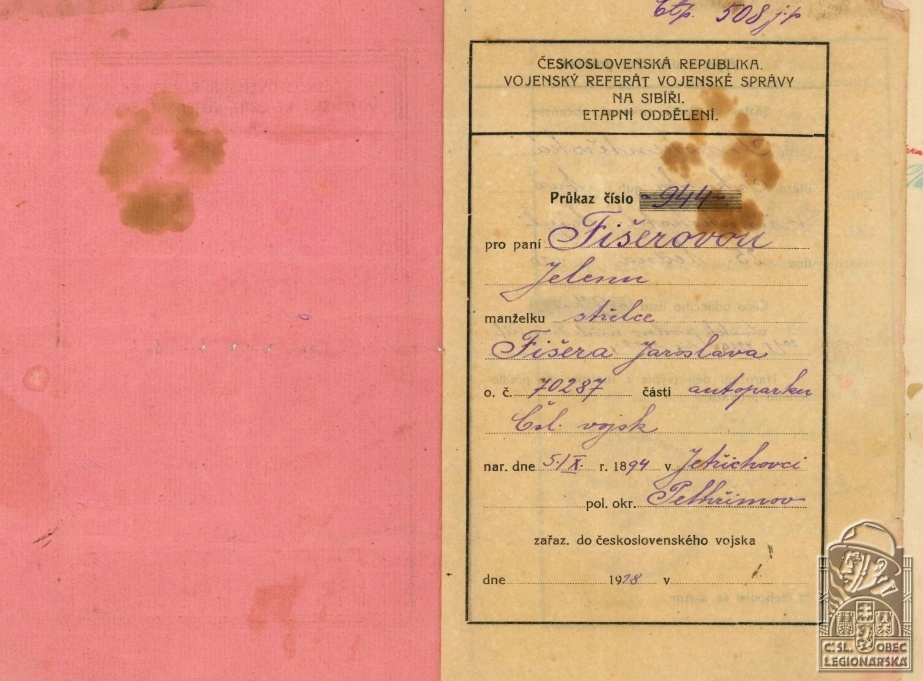 Etp. 508 j.p
ČESKOSLOVENSKÁ REPUBLIKA.
VOJENSKÝ REFERÁT VOJENSKÉ SPRÁVY
NA SIBÍŘI.
ETAPNÍ ODDĚLENÍ.
Průkaz číslo 944
pro paní Fišerovou
Jelenu
manželku střelce
Fišera Jaroslava
o. č. 70287 části autoparku
Čsl. vojsk
nar. dne 5./X. r. 1894 v Jetřichovci
pol. okr. Pelhřimov
zařaz. do československého vojska
dne 1918 v
ČSL. OBEC
LEGIONÁŘSKÁ